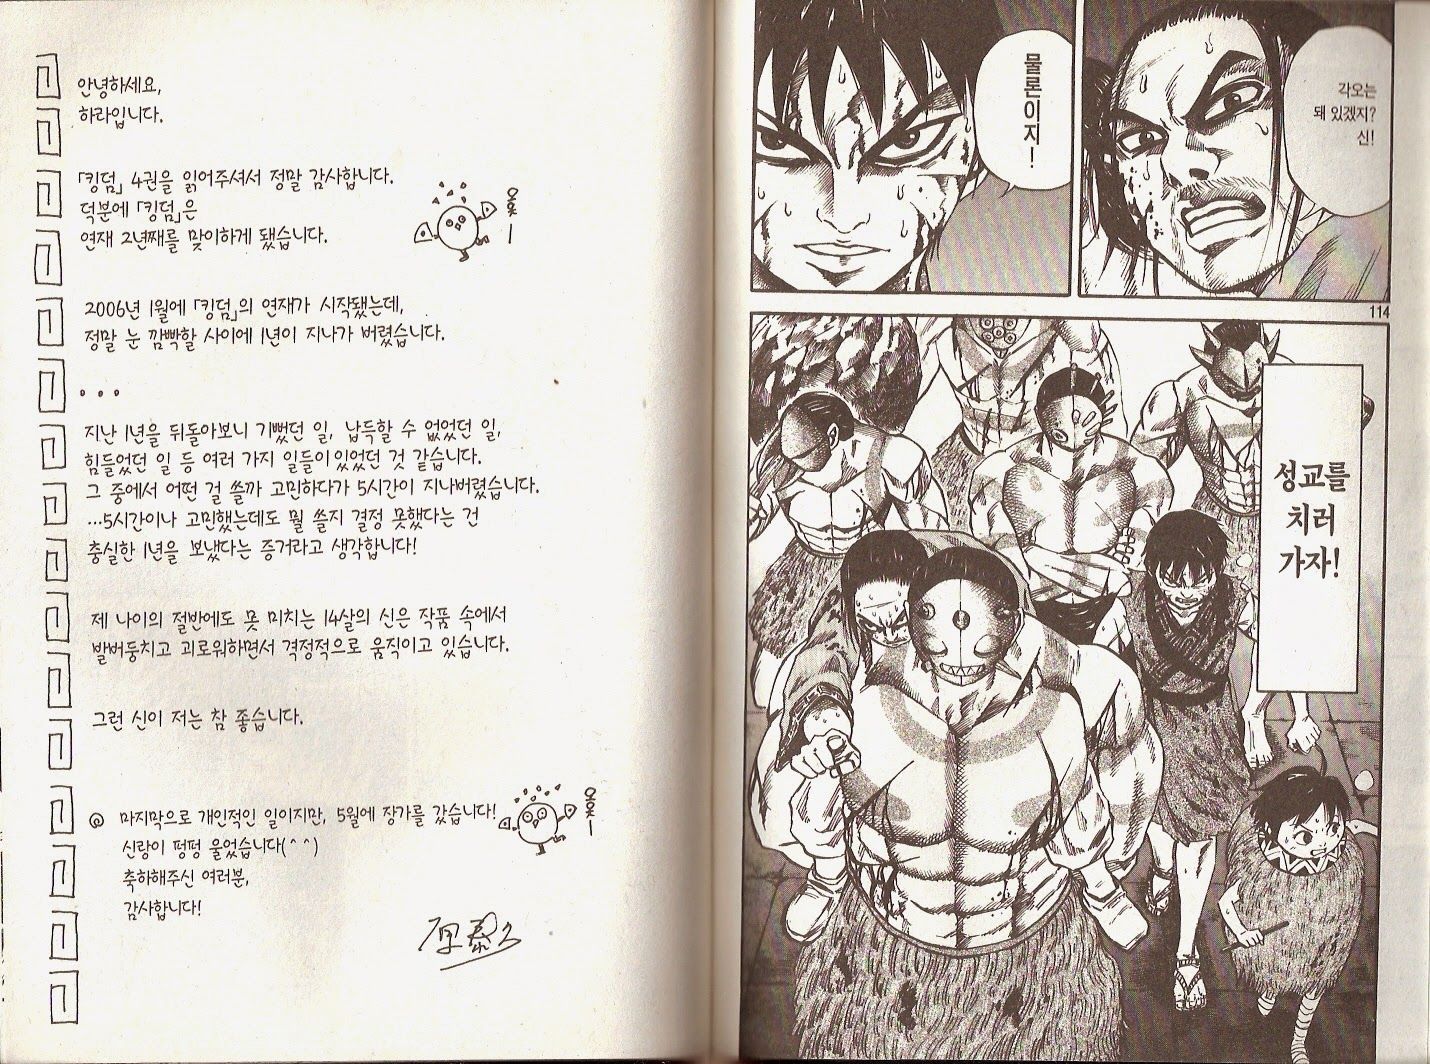 안녕하세요,
하라입니다.
「킹덤」 4권을 읽어주셔서 정말 감사합니다.
덕분에 「킹덤」은
연재 2년째를 맞이하게 됐습니다.
2006년 1월에 「킹덤」의 연재가 시작됐는데,
정말 눈 깜빡할 사이에 1년이 지나가 버렸습니다.
...
지난 1년을 뒤돌아보니 기뻤던 일, 납득할 수 없었던 일,
힘들었던 일 등 여러 가지 일들이 있었던 것 같습니다.
그 중에서 어떤 걸 쓸까 고민하다가 5시간이 지나버렸습니다.
...5시간이나 고민했는데도 뭘 쓸지 결정 못했다는 건
충실한 1년을 보냈다는 증거라고 생각합니다!
제 나이의 절반에도 못 미치는 14살의 신은 작품 속에서
발버둥치고 괴로워하면서 격정적으로 움직이고 있습니다.
그런 신이 저는 참 좋습니다.
◎ 마지막으로 개인적인 일이지만, 5월에 장가를 갔습니다!
신랑이 펑펑 울었습니다(^^)
축하해주신 여러분,
감사합니다!
原泰久
각오는
돼 있겠지?
신!
물론이지!
114
성교를
치러
가자!